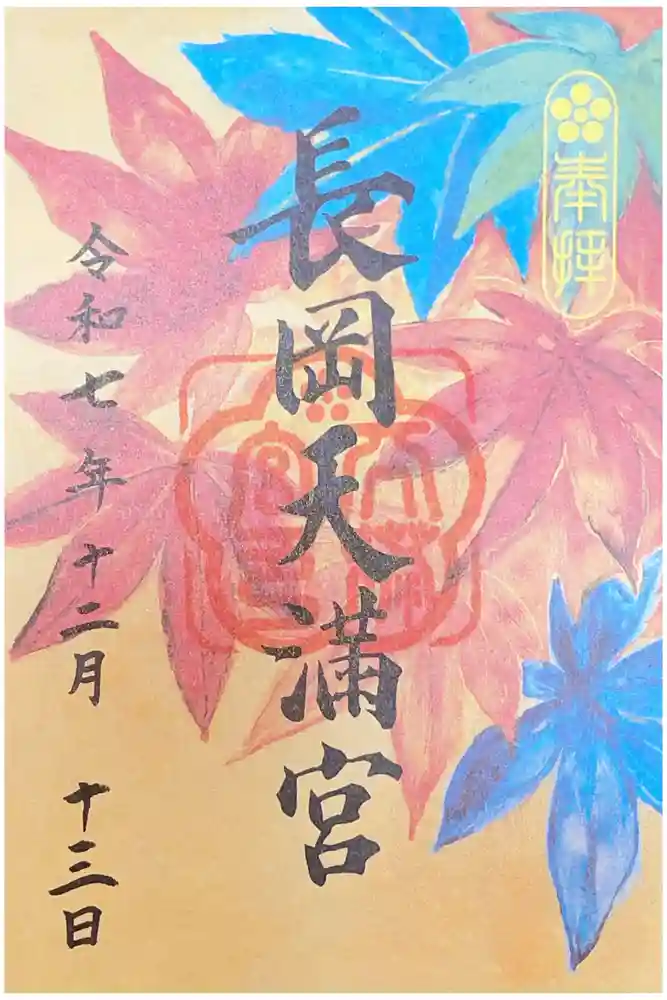 奉拝
長岡天満宮
令和七年十二月十三日